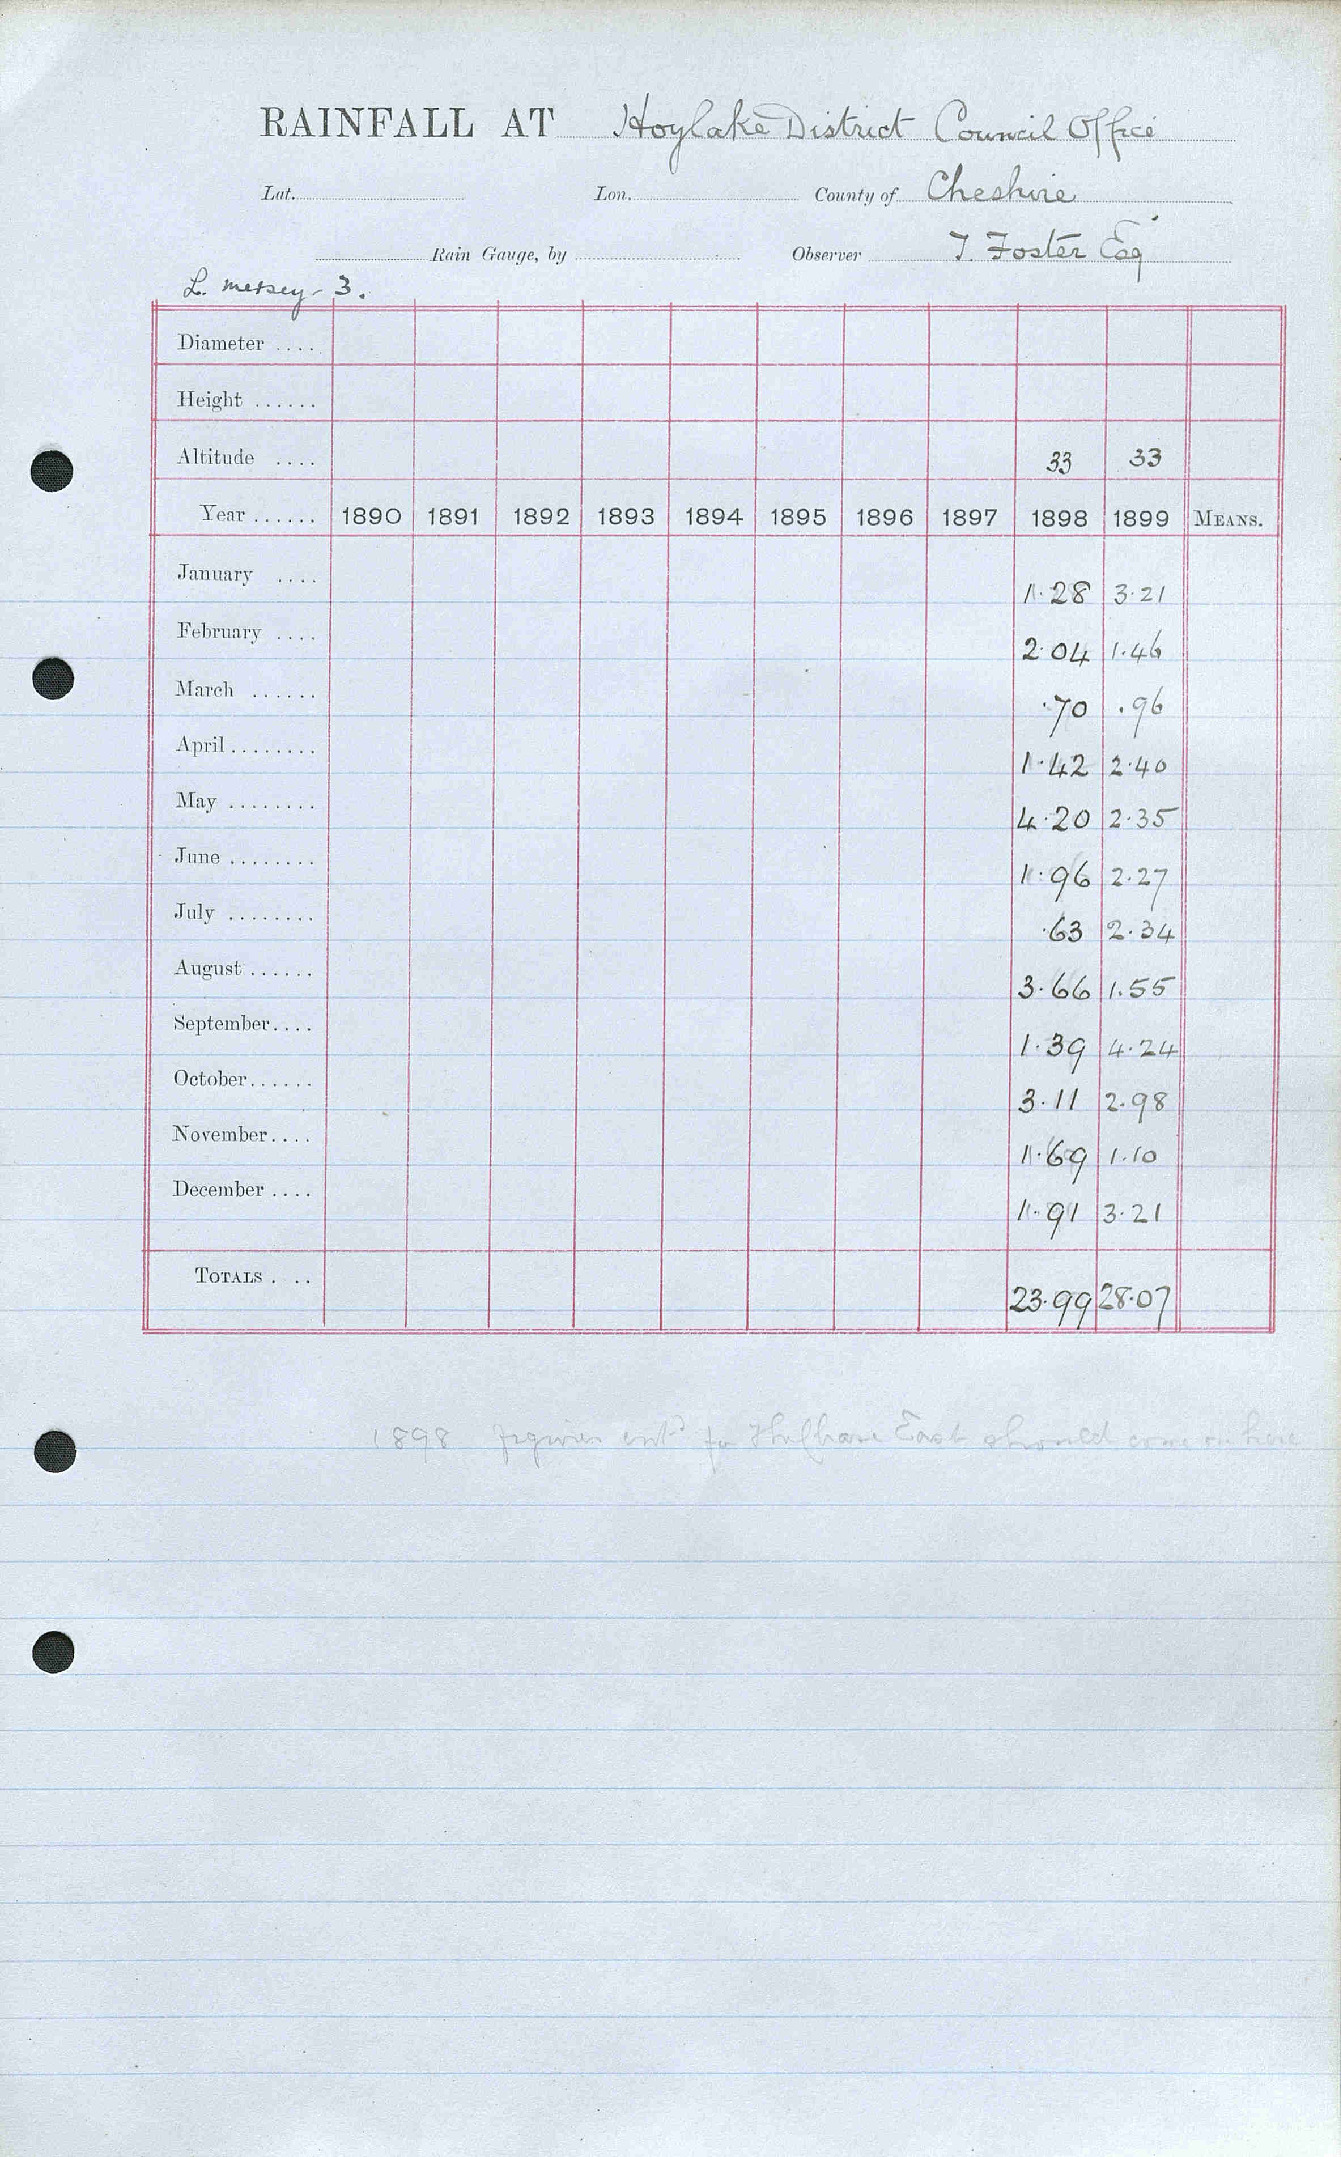 RAINFALL AT Hoylake District Council Office
Lat. Lon. County of Cheshire
Rain Gauge, by Observer T. Foster Esq
L. Mersey - 3.
Diameter ....
Height ......
Altitude .... 33 33
Year ...... 1890 1891 1892 1893 1894 1895 1896 1897 1898 1899 MEANS.
January .... 1.28 3.21
February .... 2.04 1.46
March ...... .70 .96
April ........ 1.42 2.40
May ........ 4.20 2.35
June ........ 1.96 2.27
July ........ .63 2.34
August ...... 3.66 1.55
September.... 1.39 4.24
October...... 3.11 2.98
November.... 1.69 1.10
December .... 1.91 3.21
TOTALS . .. 23.99 28.07
1898 figures ent^d for East should come on here